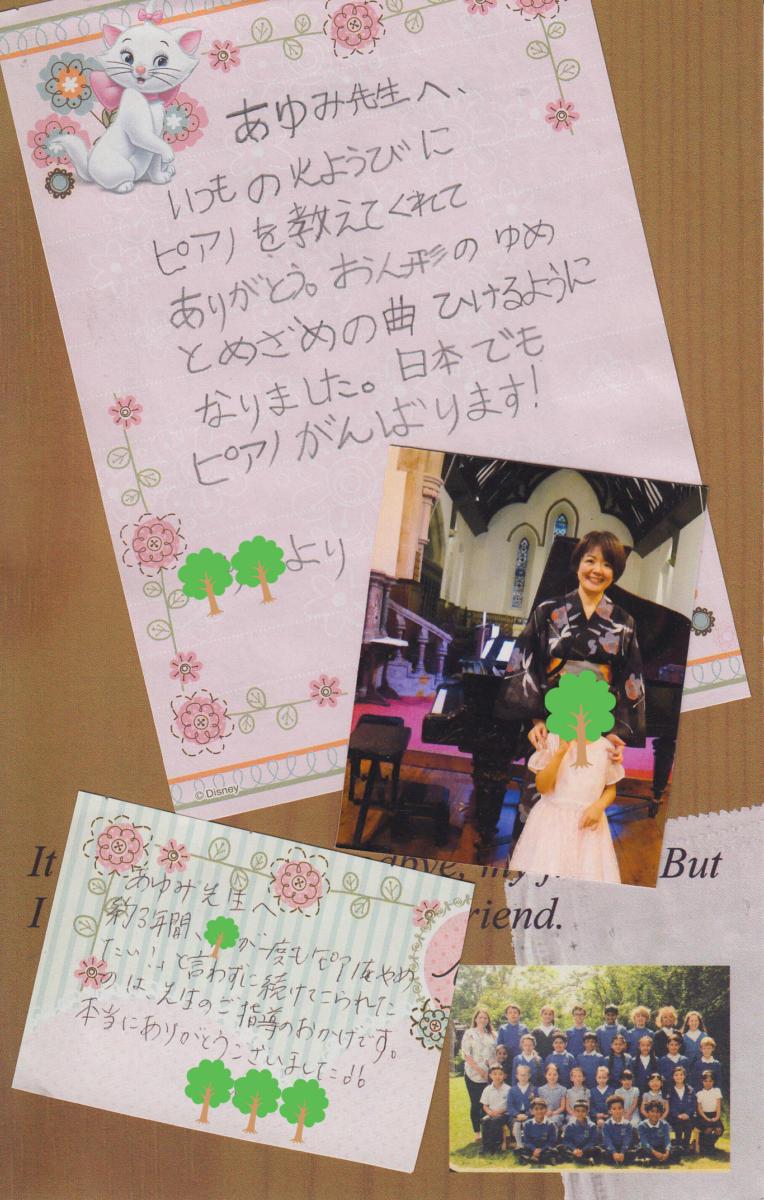 あゆみ先生へ、
いつもの火ようびに
ピアノを教えてくれて
ありがとう。おにん形のゆめ
とめざめの曲ひけるように
なりました。日本でも
ピアノがんばります!
より
© Disney
It
dbye, my f
But
I
riend.
あゆみ先生へ
約3年間、
が一度もピアノをやめ
たい!」と言わずに続けてこられた
のは、先生のご指導のおかげです。
本当にありがとうございました!!